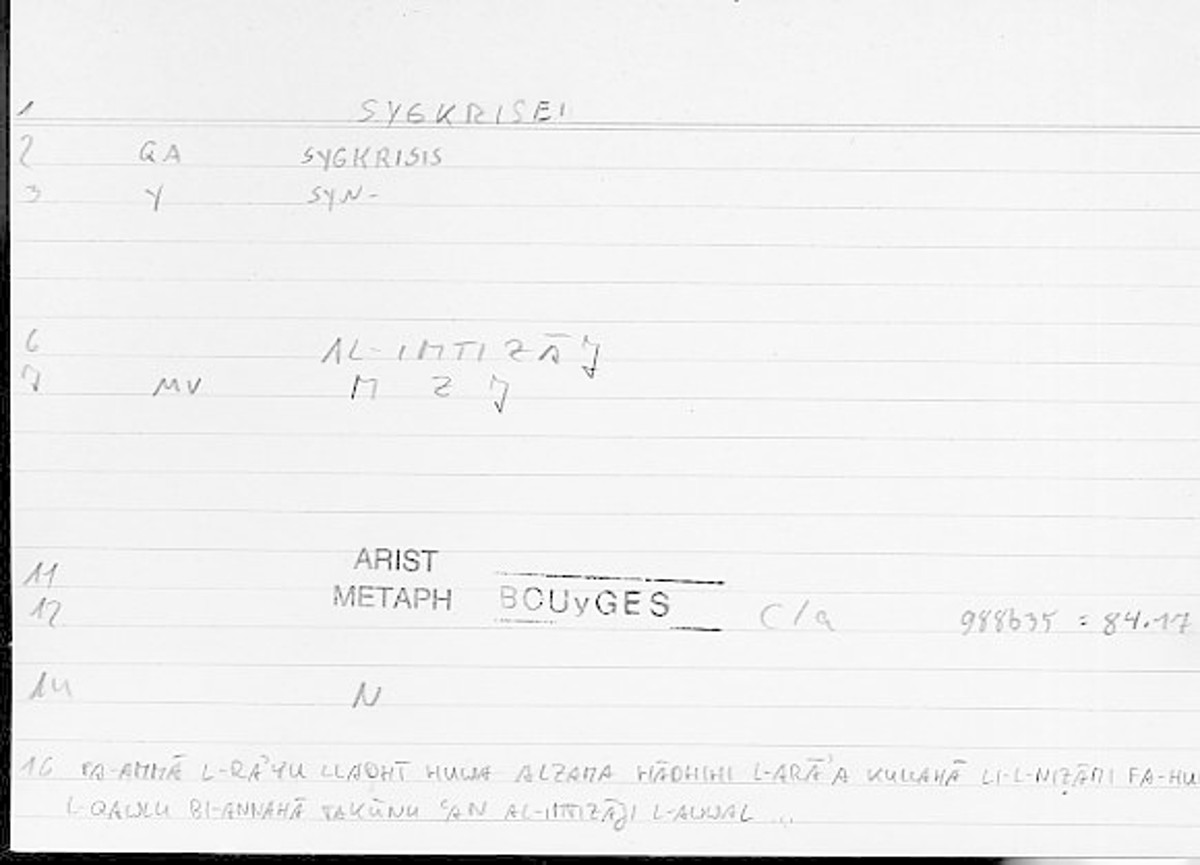 1 SYGKRISEI
2 QA SYGKRISIS
3 Y SYN-
6 AL-IMTIZĀJ
7 MV M Z J
11 ARIST
12 METAPH BOUyGES C/a 988b35 = 84.17
14 N
16 FA-AMMĀ L-RAʾYU LLADHĪ HUWA ALZAMA HĀDHIHI L-ARĀʾA KULLAHĀ LI-L-NIẒĀMI FA-HU
L-QAWLU BI-ANNAHĀ TAKŪNU ʿAN AL-IMTIZĀJI L-AWWAL ...